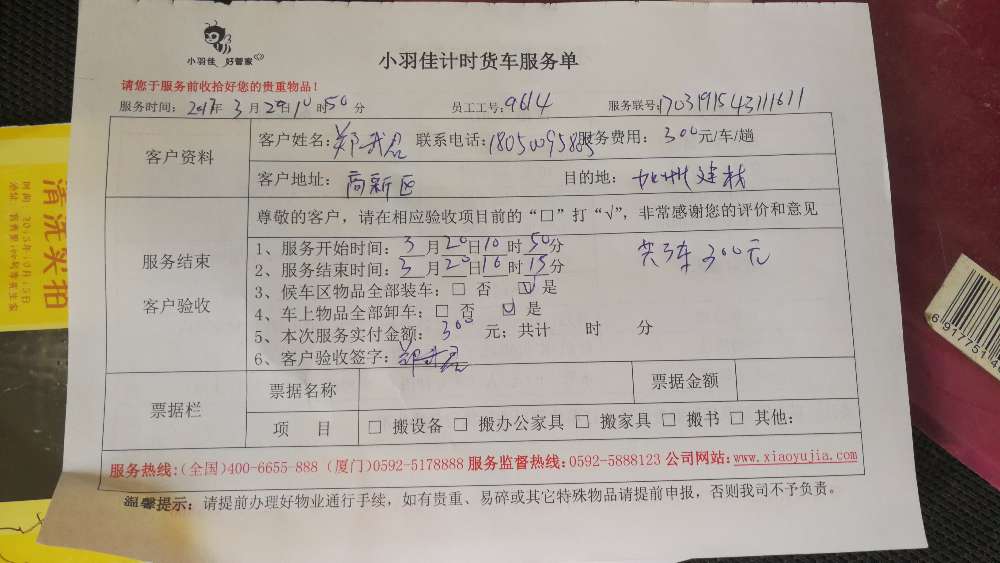 小羽佳 好管家
小羽佳计时货车服务单
请您于服务前收拾好您的贵重物品!
服务时间: 2017年 3月29日10时50分 员工工号:9614 服务联号:1703191543111611
客户资料
客户姓名: 郑我君 联系电话: 服务费用: 300元/车/趟
客户地址: 高新区 目的地: 加州建材
尊敬的客户，请在相应验收项目前的“□”打“√”，非常感谢您的评价和意见
服务结束
客户验收
1、服务开始时间: 3月20日10时50分
2、服务结束时间: 3月20日16时15分
共3车300元
3、候车区物品全部装车: □ 否 ☑ 是
4、车上物品全部卸车: □ 否 ☑ 是
5、本次服务实付金额: 300 元; 共计 时 分
6、客户验收签字: 郑我君
票据栏
票据名称 票据金额
项 目 □ 搬设备 □ 搬办公家具 □ 搬家具 □ 搬书 □ 其他:
服务热线:(全国)400-6655-888 (厦门)0592-5178888 服务监督热线:0592-5888123 公司网站:www.xiaoyujia.com
温馨提示: 请提前办理好物业通行手续，如有贵重、易碎或其它特殊物品请提前申报，否则我司不予负责。
清洗头拍
6 917751 4